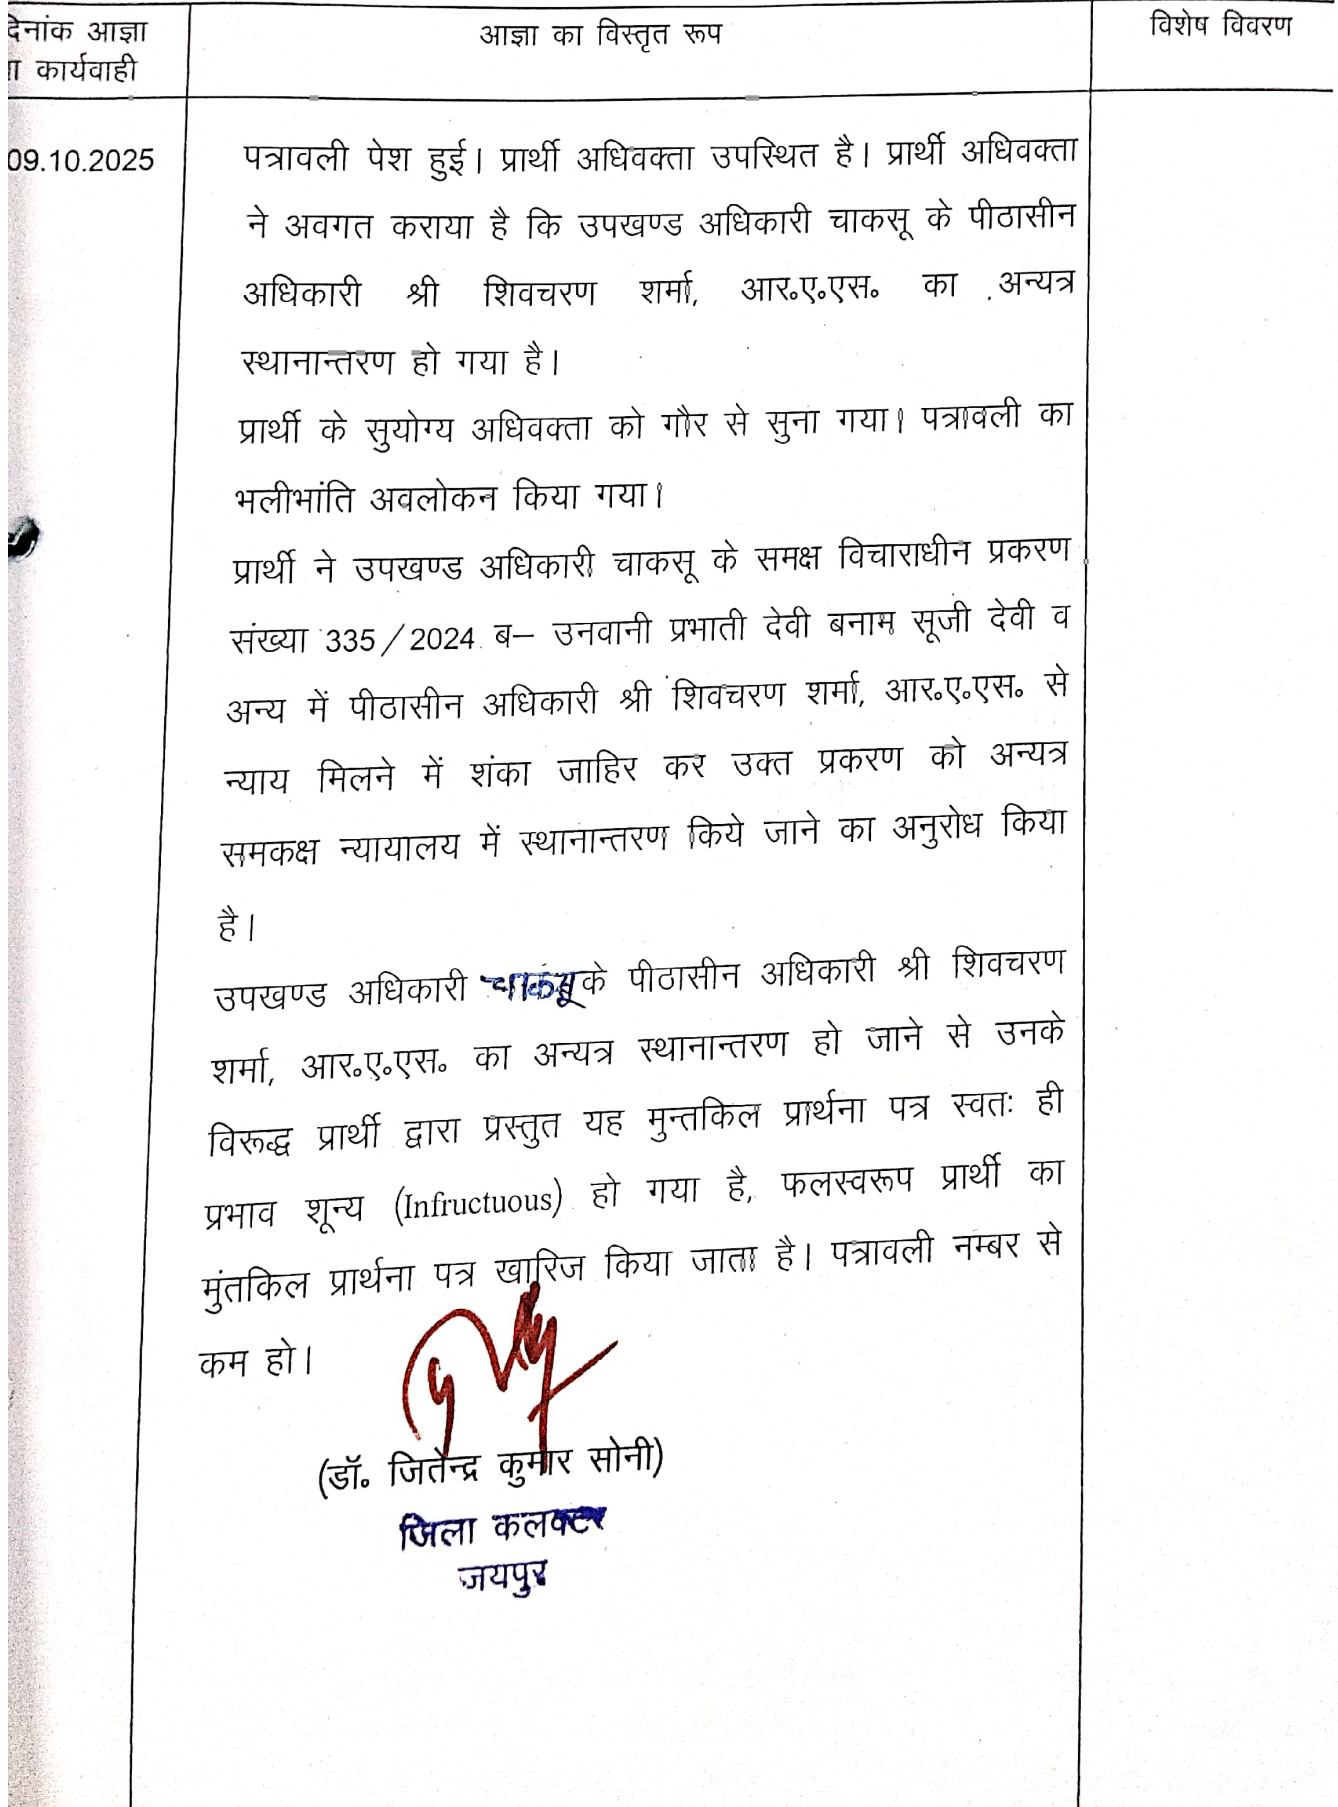 दिनांक आज्ञा
ा कार्यवाही
आज्ञा का विस्तृत रूप
विशेष विवरण
09.10.2025
पत्रावली पेश हुई। प्रार्थी अधिवक्ता उपस्थित है। प्रार्थी अधिवक्ता
ने अवगत कराया है कि उपखण्ड अधिकारी चाकसू के पीठासीन
अधिकारी श्री शिवचरण शर्मा, आर०ए०एस० का अन्यत्र
स्थानान्तरण हो गया है।
प्रार्थी के सुयोग्य अधिवक्ता को गौर से सुना गया। पत्रावली का
भलीभांति अवलोकन किया गया।
प्रार्थी ने उपखण्ड अधिकारी चाकसू के समक्ष विचाराधीन प्रकरण
संख्या 335/2024 ब– उनवानी प्रभाती देवी बनाम सूजी देवी व
अन्य में पीठासीन अधिकारी श्री शिवचरण शर्मा, आर०ए०एस० से
न्याय मिलने में शंका जाहिर कर उक्त प्रकरण को अन्यत्र
समकक्ष न्यायालय में स्थानान्तरण किये जाने का अनुरोध किया
है।
उपखण्ड अधिकारी चाकसू के पीठासीन अधिकारी श्री शिवचरण
शर्मा, आर०ए०एस० का अन्यत्र स्थानान्तरण हो जाने से उनके
विरूद्ध प्रार्थी द्वारा प्रस्तुत यह मुन्तकिल प्रार्थना पत्र स्वतः ही
प्रभाव शून्य (Infructuous) हो गया है, फलस्वरूप प्रार्थी का
मुंतकिल प्रार्थना पत्र खारिज किया जाता है। पत्रावली नम्बर से
कम हो।
(डॉ० जितेन्द्र कुमार सोनी)
जिला कलक्टर
जयपुर